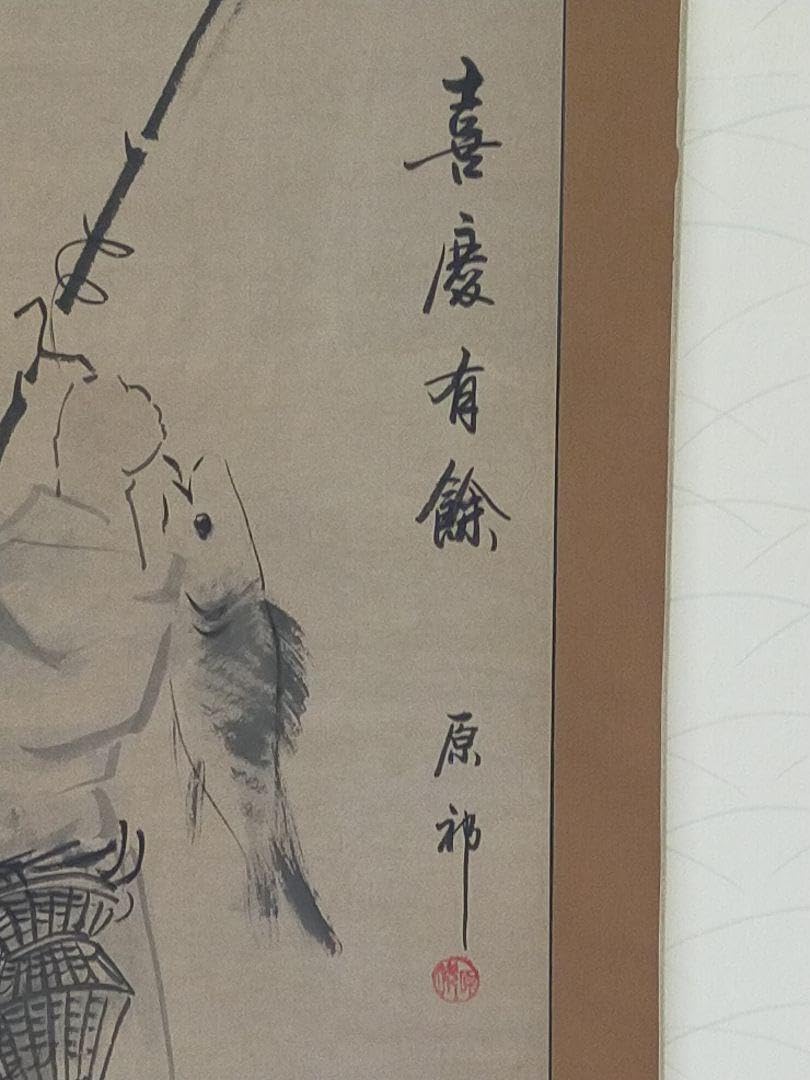 喜慶有餘
原祁